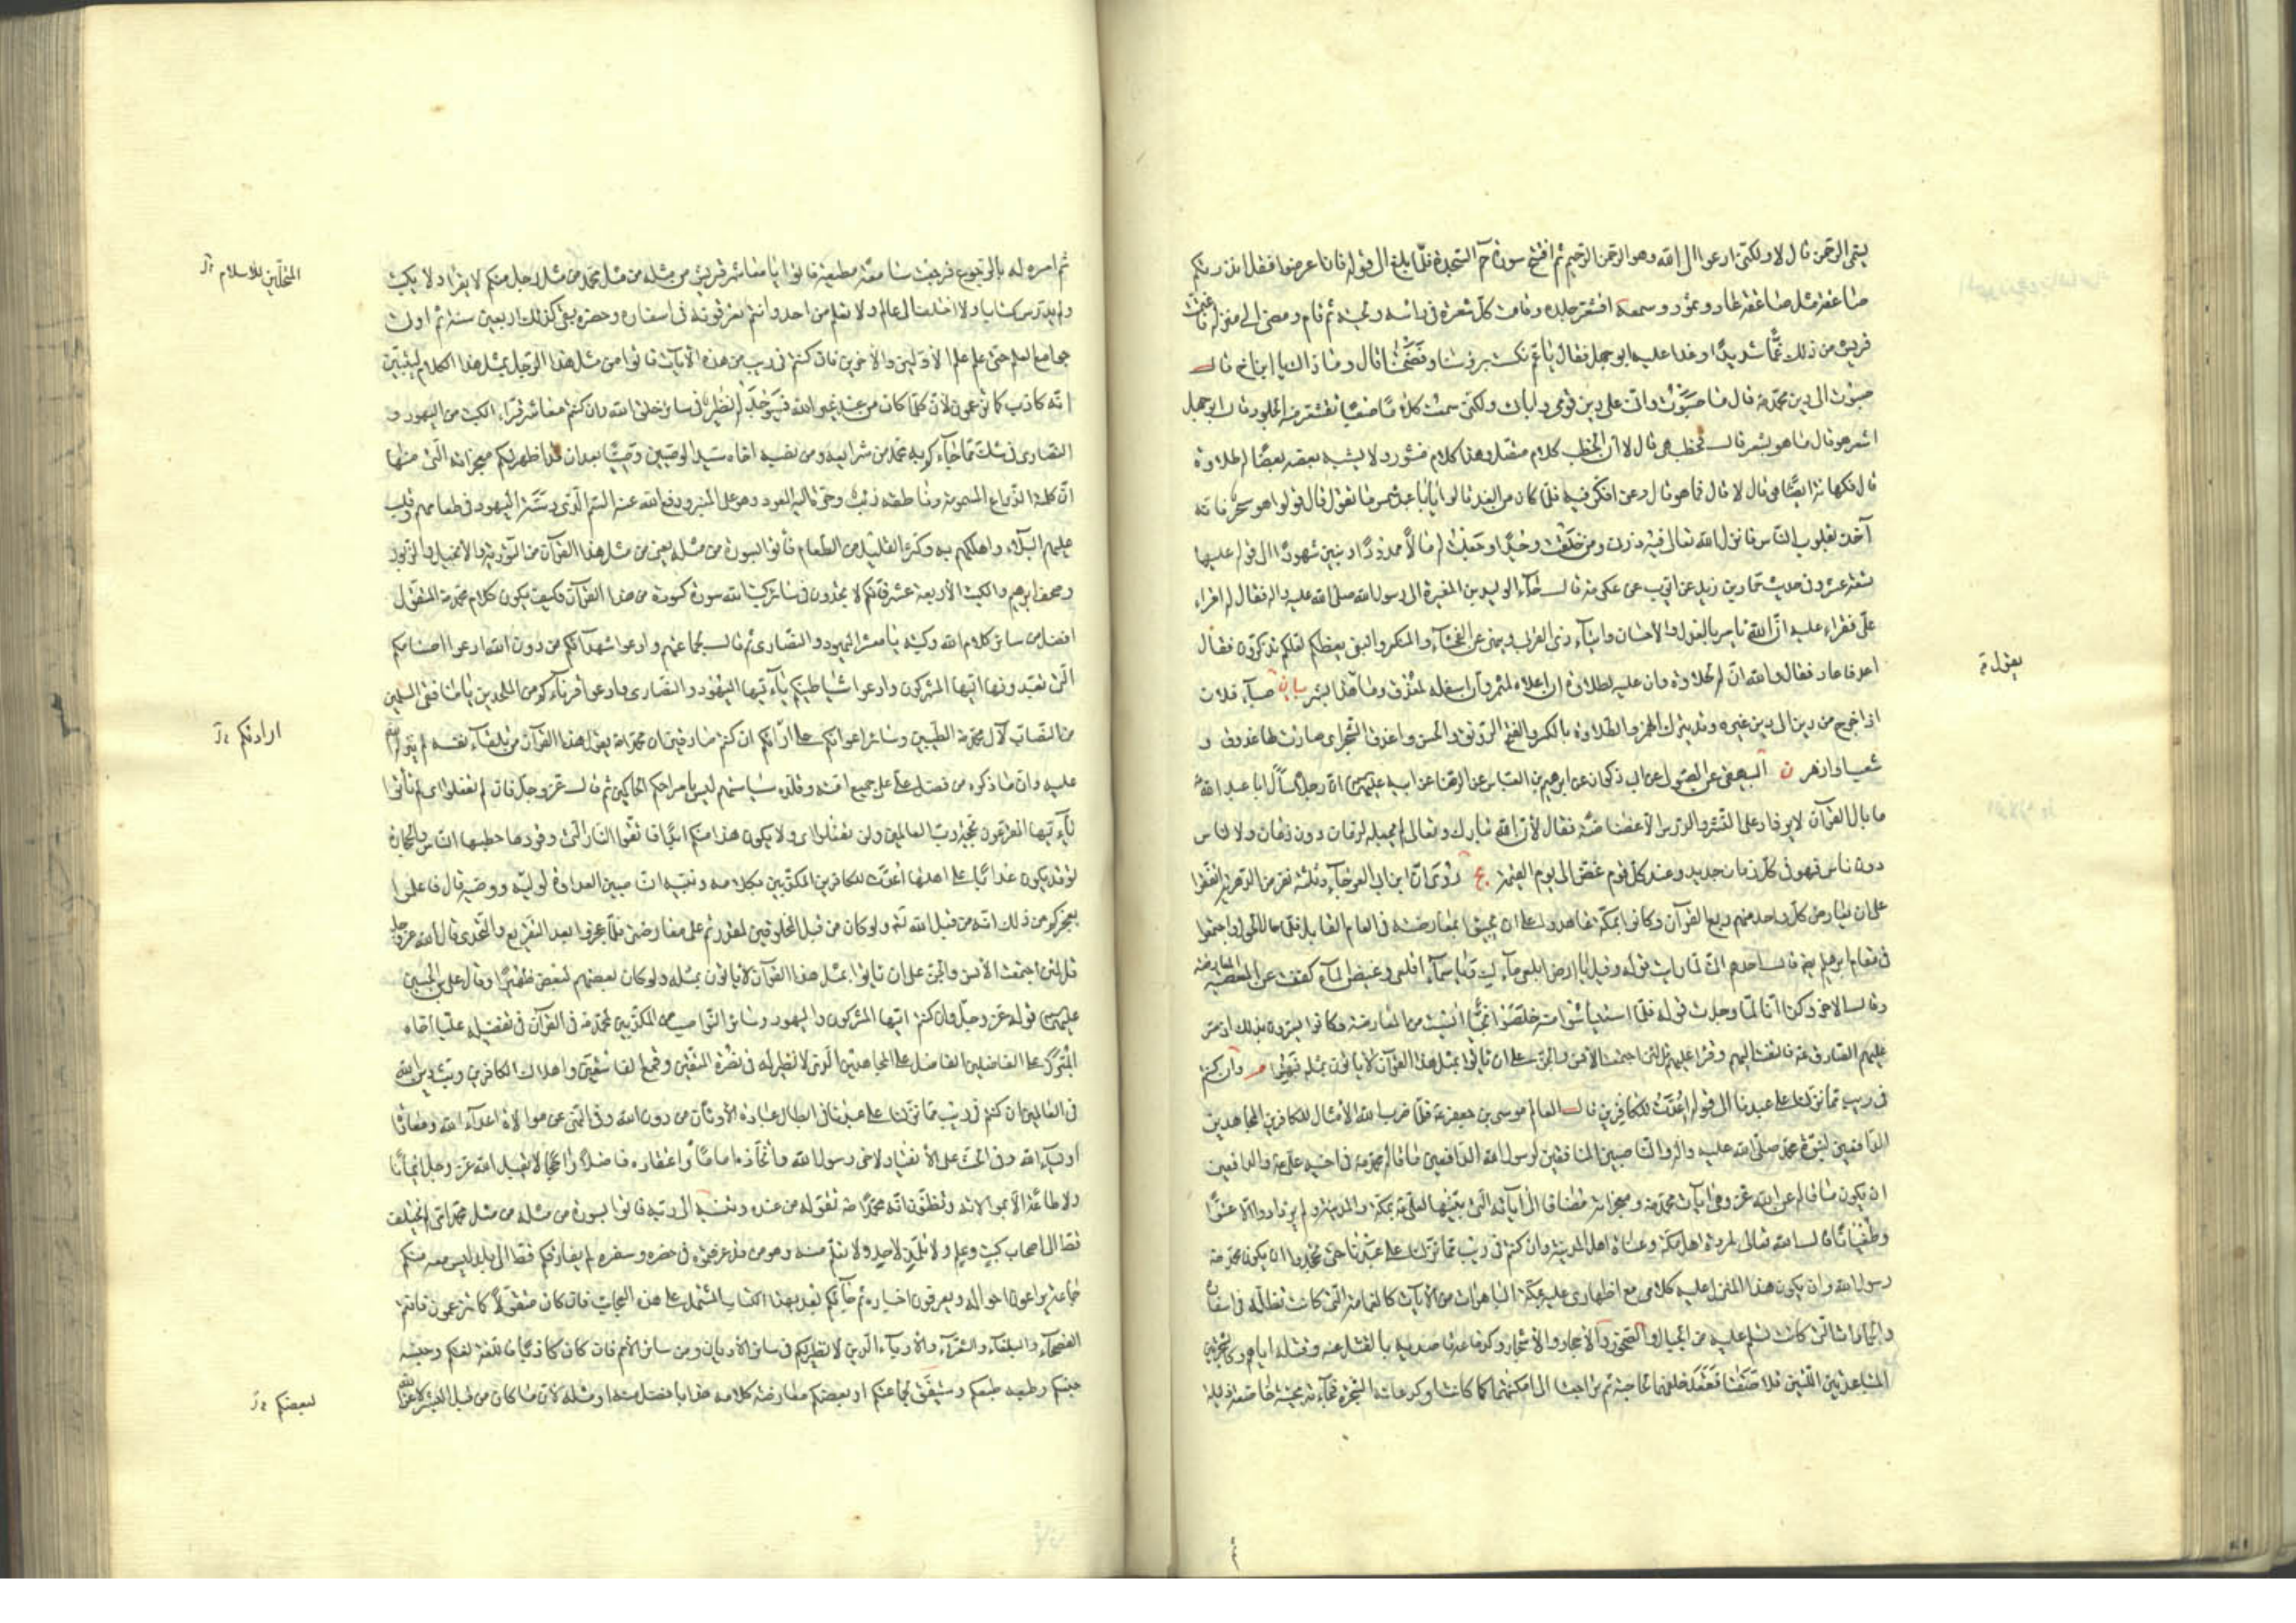 يسمى الرحمن قال لا ولكنى ادعو الى الله وهو الرحمن الرحيم ثم افتتح سورة حم السجدة فلما بلغ الى قوله فان اعرضوا فقل انذرتكم
صاعقة مثل صاعقة عاد وثمود وسمعه اقشعر جلده وقامت كل شعرة فى راسه ولحيته ثم قام ومضى الى منزله
قريش من ذلك غما شديدا وغدا عليه ابو جهل فقال يا عم نكست برؤسنا وفضحتنا قال وما ذاك يا ابن اخ قال
صبوت الى دين محمد ص قال ما صبوت وانى على دين قومى وابائى ولكنى سمعت كلاما صعبا تقشعر منه الجلود قال ابو جهل
اشعر هو قال ما هو بشعر قال فخطب هى قال لا ان الخطب كلام متصل وهذا كلام منثور ولا يشبه بعضه بعضا له طلاوة
قال فكهانة هى قال لا قال فما هو قال دعنى افكر فيه فلما كان من الغد قالوا يا با عبد شمس ما تقول قال قولوا هو سحر فانه
آخذ بقلوب الناس فانزل الله تعالى فيه ذرنى ومن خلقت وحيدا وجعلت له مالا ممدودا وبنين شهودا الى قوله عليها
تسعة عشر وفى حديث حماد بن زيد عن ايوب عن عكرمة قال جاء الوليد بن المغيرة الى رسول الله صلى الله عليه واله فقال له اقرأ
على فقرأ عليه ان الله يامر بالعدل والاحسان وايتاء ذى القربى وينهى عن الفحشاء والمنكر والبغى يعظكم لعلكم تذكرون فقال
اعد فاعاد فقال والله ان له لحلاوة وان عليه لطلاوة ان اعلاه لمثمر وان اسفله لمغدق وما هذا بشر بيان صبأ فلان
اذا خرج من دين الى دين غيره وقد يترك الهمز والطلاوة بالكسر والفتح الرونق والحسن واغدق الشجر اى صارت لها غدوق و
شعب او ازهر ن البيهقى عن الصولى عن ابى ذكوان عن ابرهيم بن العباس عن الرضا عن ابيه عليهما السلام ان رجلا سأل ابا عبد الله
ما بال القرآن لا يزداد على النشر والدرس الا غضاضة فقال لان الله تبارك وتعالى لم يجعله لزمان دون زمان ولا لناس
دون ناس فهو فى كل زمان جديد وعند كل قوم غض الى يوم القيمة يج روى ان ابن ابى العوجاء وثلثة نفر من الدهرية اتفقوا
على ان يعارض كل واحد منهم ربع القرآن وكانوا بمكة عاهدوا على ان يجيئوا بمعارضته فى العام القابل فلما حال الحول واجتمعوا
فى مقام ابرهيم قال احدهم انى لما رايت قوله وقيل يا ارض ابلعى ماءك ويا سماء اقلعى وغيض الماء كففت عن المعارضة
وقال الاخر وكذا انا لما وجدت قوله فلما استيأسوا منه خلصوا نجيا ايست من المعارضة وكانوا يسرون بذلك اذ مر
عليهم الصادق ع فالتفت اليهم وقرأ عليهم قل لئن اجتمعت الانس والجن على ان ياتوا بمثل هذا القرآن لا ياتون بمثله فبهتوا م وان كنتم
فى ريب مما نزلنا على عبدنا الى قوله اعدت للكافرين قال العالم موسى بن جعفر ع فلما ضرب الله الامثال للكافرين المجاهدين
الدافعين لنبوة محمد صلى الله عليه واله والناصبين المنافقين لرسول الله الدافعين ما قاله محمد ص فى اخيه على ع والدافعين
ان يكون ما قاله عن الله عز وجل وهى آيات محمد ص ومعجزاته مضافا الى آياته التى بينها لعلى ع بمكة والمدينة ولم يزدادوا الا عتوا
وطغيانا قال الله تعالى لمردة اهل مكة وعتاة اهل المدينة وان كنتم فى ريب مما نزلنا على عبدنا حتى تجحدوا ان يكون محمد ص
رسول الله وان يكون هذا المنزل عليه كلامى مع اظهارى عليه بمكة الباهرات من الآيات كالغمامة التى كانت تظله فى اسفاره
والجمادات التى كانت تسلم عليه من الجبال والصخور والاحجار والاشجار وكدفاعه قاصديه بالقتل عنه وقتله اياهم وكالشجرتين
المتباعدتين اللتين تلاصقتا فقعد خلفهما لحاجته ثم تراجعتا الى امكنتهما كما كانتا وكدعائه الشجرة فجاءته مجيبة خاضعة ذليلة
يقول ة
ثم امره لها بالرجوع فرجعت سامعة مطيعة فاتوا يا معاشر قريش من مثله من مثل محمد من مثل رجل منكم لا يقرأ ولا يكتب
ولم يدرس كتابا ولا اختلف الى عالم ولا تعلم من احد وانتم تعرفونه فى اسفاره وحضره بقى كذلك اربعين سنة ثم اوتى
جوامع العلم حتى علم علم الاولين والآخرين فان كنتم فى ريب من هذه الآيات فاتوا من مثل هذا الرجل بمثل هذا الكلام ليتبين
انه كاذب كما تزعمون لان كلما كان من عند غير الله فسيوجد له نظير فى سائر خلق الله وان كنتم معاشر قراء الكتب من اليهود و
النصارى فى شك مما جاءكم به محمد من شرايعه ومن نصبه اخاه سيد الوصيين وصيا بعد ان قد اظهر لكم معجزاته التى منها
ان كلمه الذراع المسمومة وناطقه ذئب وحن اليه العود وهو على المنبر ودفع الله عنه السم الذى دسته اليهود فى طعامهم وقلب
عليهم البلاء واهلكهم به وكثر القليل من الطعام فأتوا بسورة من مثله يعنى من مثل هذا القرآن من التورية والانجيل والزبور
وصحف ابرهيم والكتب الاربعة عشر فانكم لا تجدون فى سائر كتب الله سورة كسورة من هذا القرآن فكيف يكون كلام محمد ص المتقول
افضل من سائر كلام الله وكتبه يا معشر اليهود والنصارى ثم قال لجماعتهم وادعوا شهداءكم من دون الله ادعوا اصنامكم
التى تعبدونها ايها المشركون وادعوا شياطينكم يا ايها اليهود والنصارى وادعوا قرناءكم من الملحدين يا منافقى المسلمين
من النصاب لآل محمد ص الطيبين وسائر اعوانكم على ارائكم ان كنتم صادقين ان محمدا ص يقول هذا القرآن من تلقاء نفسه لم ينزله
عليه وان ما ذكره من فضل على ع على جميع امته وقلده سياستهم ليس بامر احكم الحاكمين ثم قال عز وجل فان لم تفعلوا اى لم تأتوا
يا ايها المقرعون بحجة رب العالمين ولن تفعلوا اى ولا يكون هذا منكم ابدا فاتقوا النار التى وقودها حطبها الناس والحجارة
توقد يكون عذابا على اهلها اعدت للكافرين المكذبين بكلامه ونبيه الناصبين العداوة لوليه ووصيه قال فاعلموا
بعجزكم عن ذلك انه من قبل الله تع ولو كان من قبل المخلوقين لقدرتم على معارضتى فلما عجزوا بعد التقريع والتحدى قال الله عز وجل
قل لئن اجتمعت الانس والجن على ان ياتوا بمثل هذا القرآن لا ياتون بمثله ولو كان بعضهم لبعض ظهيرا وقال على بن الحسين
عليهما السلام قوله عز وجل وان كنتم ايها المشركون واليهود وسائر النواصب من المكذبين لمحمد ص فى القرآن فى تفضيله عليا اخاه
المبرز على الفاضلين الفاضل على المجاهدين الذى لا نظير له فى نصرة المتقين وقمع الفاسقين واهلاك الكافرين وبث دين الله
فى العالمين ان كنتم فى ريب مما نزلنا على عبدنا فى ابطال عبادة الاوثان من دون الله وفى النهى عن موالاة اعداء الله ومعاداة
اولياء الله وفى الحث على الانقياد لاخى رسول الله واتخاذه اماما واعتقاده فاضلا راجحا لا يقبل الله عز وجل ايمانا
ولا طاعة الا بموالاته وتظنون ان محمدا ص تقوله من عنده وينسبه الى ربه فاتوا بسورة من مثله من مثل محمد امى لم يختلف
قط الى اصحاب كتب وعلم ولا تلمذ لاحد ولا تعلم منه وهو من قد عرفتموه فى حضره وسفره لم يفارقكم قط الى بلد ليس معه منكم
جماعة يراعون احواله ويعرفون اخباره ثم جاءكم بعد بهذا الكتاب المشتمل على هذه العجايب فان كان متقولا كما تزعمون فانتم
الفصحاء والبلغاء والشعراء والادباء الذين لا نظير لكم فى سائر الاديان ومن سائر الامم فان كان كاذبا فاللغة لغتكم وجنسه
جنسكم وطبعه طبعكم وسيتفق لجماعتكم او بعضكم معارضة كلامه هذا بافضل منه او مثله لان ما كان من قبل البشر لا عن الله
المنتحلين للاسلام
ارادتكم
لبعضكم